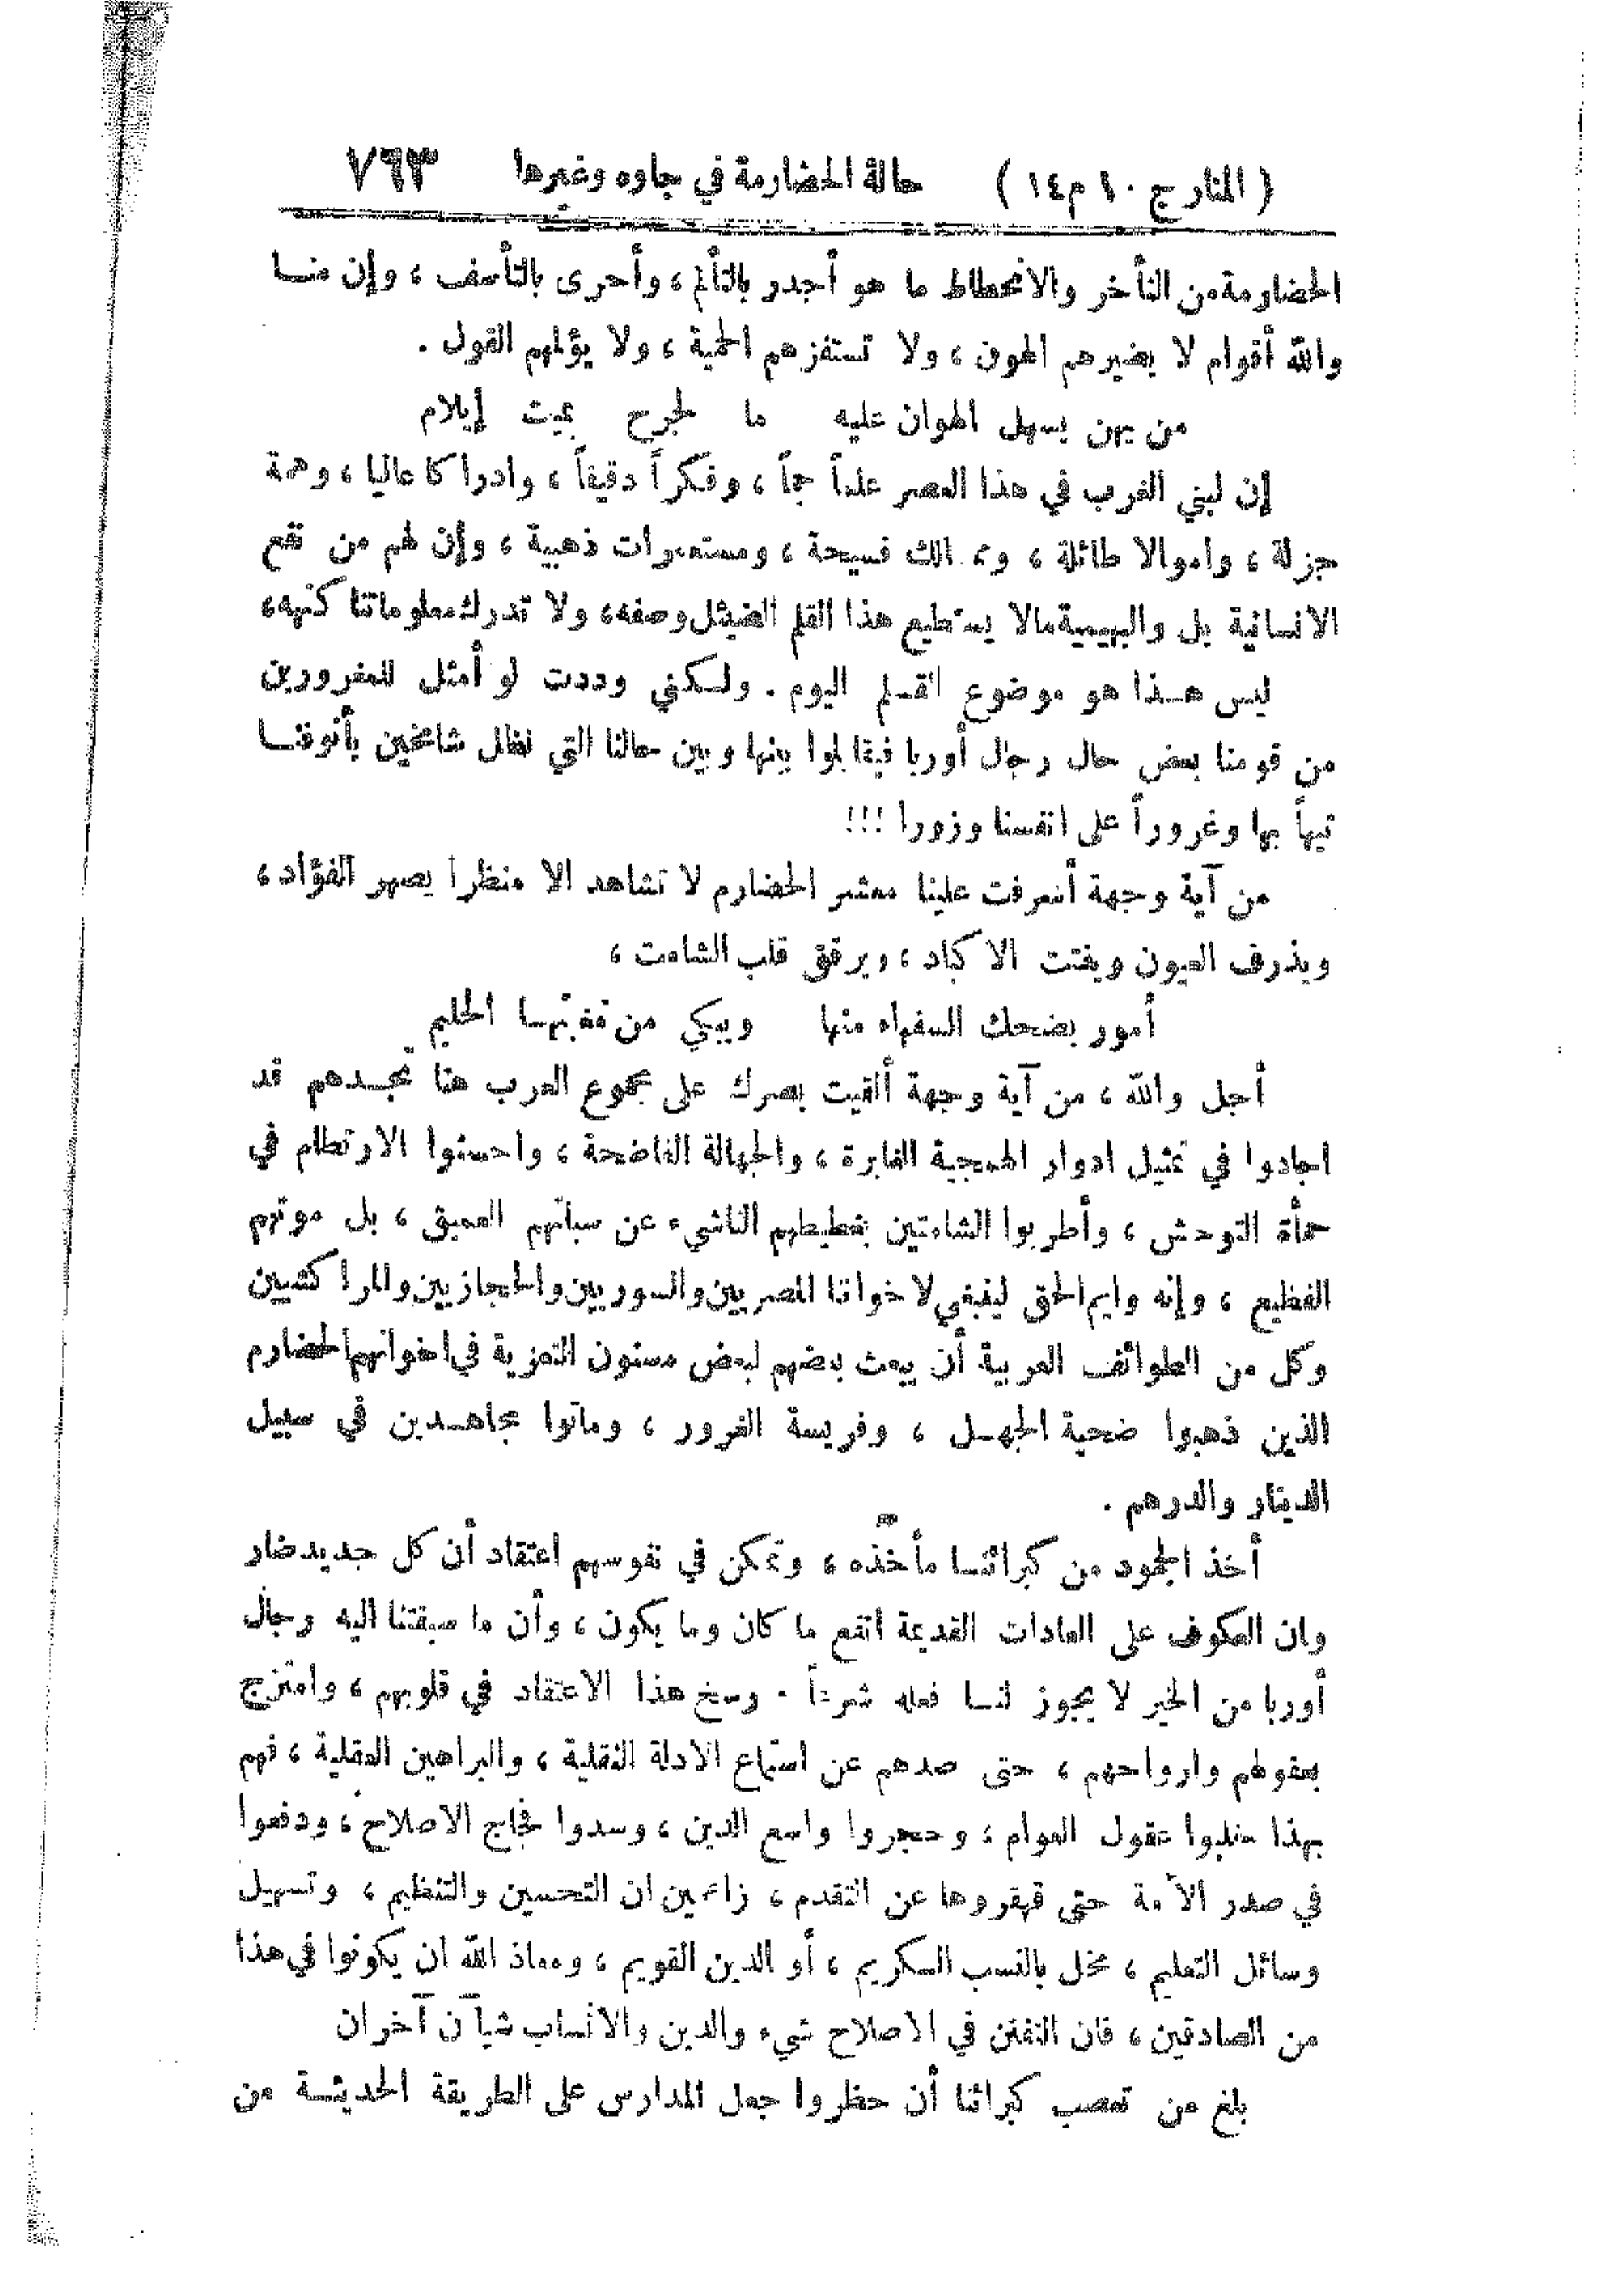 ( المنار ج ١٠ م ١٤ ) حالة الحضارمة في جاوه وغيرها ٧٦٣
الحضارمة من التأخر والانحطاط ما هو أجدر بالتألم ، وأحرى بالتأسف ، وإن منا
والله أقوام لا يضيرهم الهون ، ولا تستفزهم الحمية ، ولا يؤلمهم القول .
من يهن يسهل الهوان عليه ما لجرح بميت إيلام
إن لبني الغرب في هذا العصر علماً جماً ، وفكراً دقيقاً ، وادراكا عاليا ، وهمة
جزلة ، واموالا طائلة ، وممالك فسيحة ، ومستعمرات ذهبية ، وإن لهم من نفع
الانسانية بل والبهيمية مالا يستطيع هذا القلم الضئيل وصفه، ولا تدرك معلوماتنا كنهه،
ليس هذا هو موضوع القلم اليوم . ولكني وددت لو أمثل للمغرورين
من قومنا بعض حال رجال أوربا فيقابلوا بينها وبين حالنا التي نظل شامخين بأنوفنا
تيهاً بها وغروراً على انفسنا وزورا !!!
من آية وجهة أشرفت علينا معشر الحضارم لا تشاهد الا منظرا يصهر الفؤاد ،
ويذرف العيون ويفتت الاكباد ، ويرقق قلب الشامت ،
أمور يضحك السفهاء منها ويبكي من مغبتها الحليم
أجل والله ، من آية وجهة ألقيت بصرك على مجموع العرب هنا تجدهم قد
اجادوا في تمثيل ادوار الهمجية الغابرة ، والجهالة الفاضحة ، واحسنوا الارتطام في
حمأة التوحش ، وأطربوا الشامتين بغطيطهم الناشيء عن سباتهم العميق ، بل موتهم
الفظيع ، وإنه وايم الحق لينبغي لاخواننا المصريين والسوريين والحجازيين والمراكشيين
وكل من الطوائف العربية أن يبعث بعضهم لبعض مسنون التعزية في اخوانهم الحضارم
الذين ذهبوا ضحية الجهل ، وفريسة الغرور ، وماتوا مجاهدين في سبيل
الدينار والدرهم .
أخذ الجمود من كبرائنا مأخذه ، وتمكن في نفوسهم اعتقاد أن كل جديد ضار
وان العكوف على العادات القديمة انفع ما كان وما يكون ، وأن ما سبقتنا اليه رجال
أوربا من الخير لا يجوز لنا فعله شرعاً . رسخ هذا الاعتقاد في قلوبهم ، وامتزج
بعقولهم وارواحهم ، حتى صدهم عن استماع الادلة النقلية ، والبراهين العقلية ، فهم
بهذا خلبوا عقول العوام ، وحجروا واسع الدين ، وسدوا فجاج الاصلاح ، ودفعوا
في صدر الأمة حتى قهقروها عن التقدم ، زاعمين ان التحسين والتنظيم ، وتسهيل
وسائل التعليم ، مخل بالنسب الكريم ، أو الدين القويم ، ومعاذ الله ان يكونوا في هذا
من الصادقين ، فان التفنن في الاصلاح شيء والدين والانساب شيآن آخران
بلغ من تعصب كبرائنا أن حظروا جعل المدارس على الطريقة الحديثة من